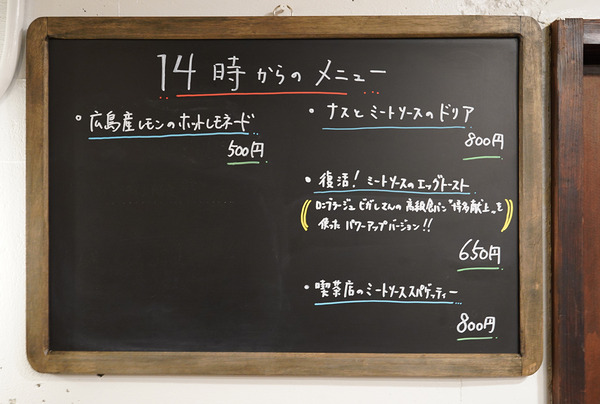 14時からのメニュー
・広島産レモンのホットレモネード
500円
・ナスとミートソースのドリア
800円
・復活!ミートソースのエッグトースト
高級食パン
使ったパワーアップバージョン!!
650円
・喫茶店のミートソーススパゲッティー
800円